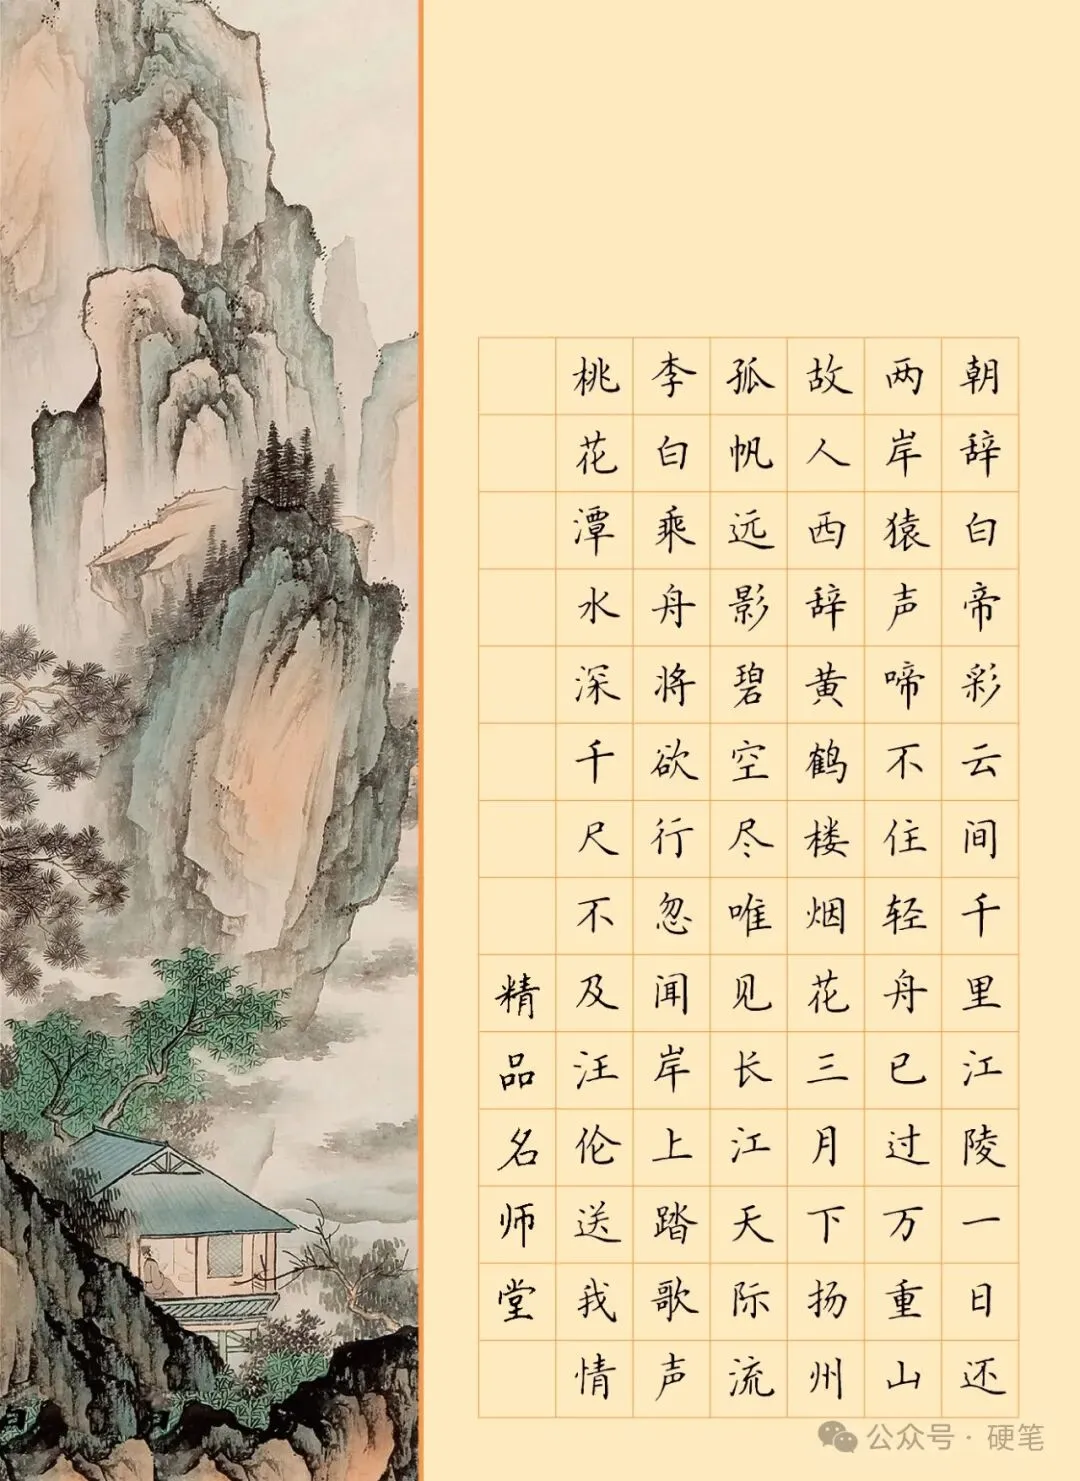 朝辞白帝彩云间千里江陵一日还
两岸猿声啼不住轻舟已过万重山
故人西辞黄鹤楼烟花三月下扬州
孤帆远影碧空尽唯见长江天际流
李白乘舟将欲行忽闻岸上踏歌声
桃花潭水深千尺不及汪伦送我情
精品名师堂
公众号·硬笔